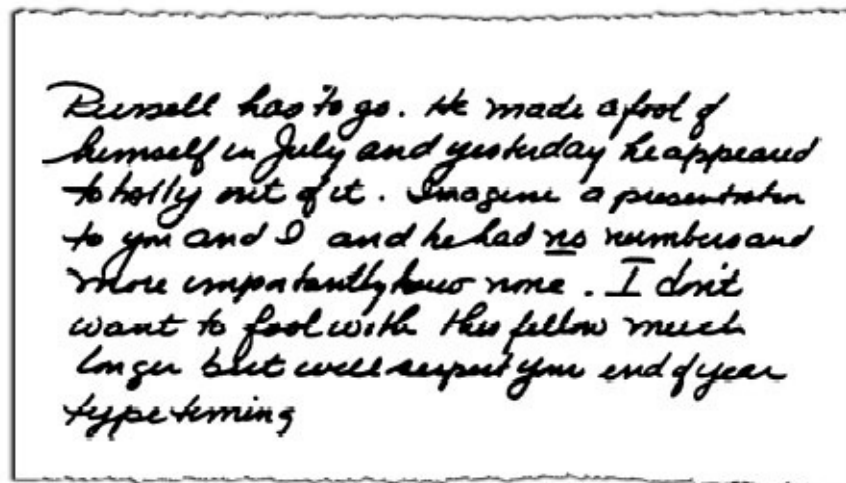 Russell has to go. He made a fool of
himself in July and yesterday he appeared
totally out of it. Imagine a presentation
to you and I and he had no numbers and
more importantly knew none. I don't
want to fool with this fellow much
longer but will respect your end of year
type timing